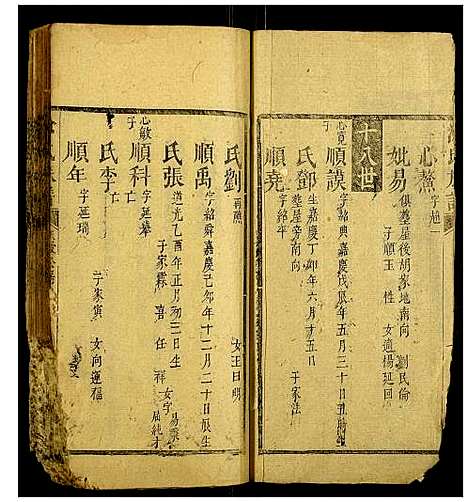 心鰲 字超一
妣易 俱塟屋後胡家地南向 劉民倫
子順玉 性 女適楊延回
十八世
心寬子 順謨 字紹典嘉慶戊辰年五月三十日丑時
氏鄧 生嘉慶丁卯年六月廿五日
塟屋旁南向 子家法
順堯 字紹平
氏劉 再醮 女王日明
順禹 字紹舜嘉慶己卯年十二月二十日辰生
氏張 道光乙酉年正月初二日生
子家霖 喜 任 祥 女字易 屈純才
心敏子 順科 字廷舉 亡
氏李 亡
順年 字廷瑞 子家寅 女向運福